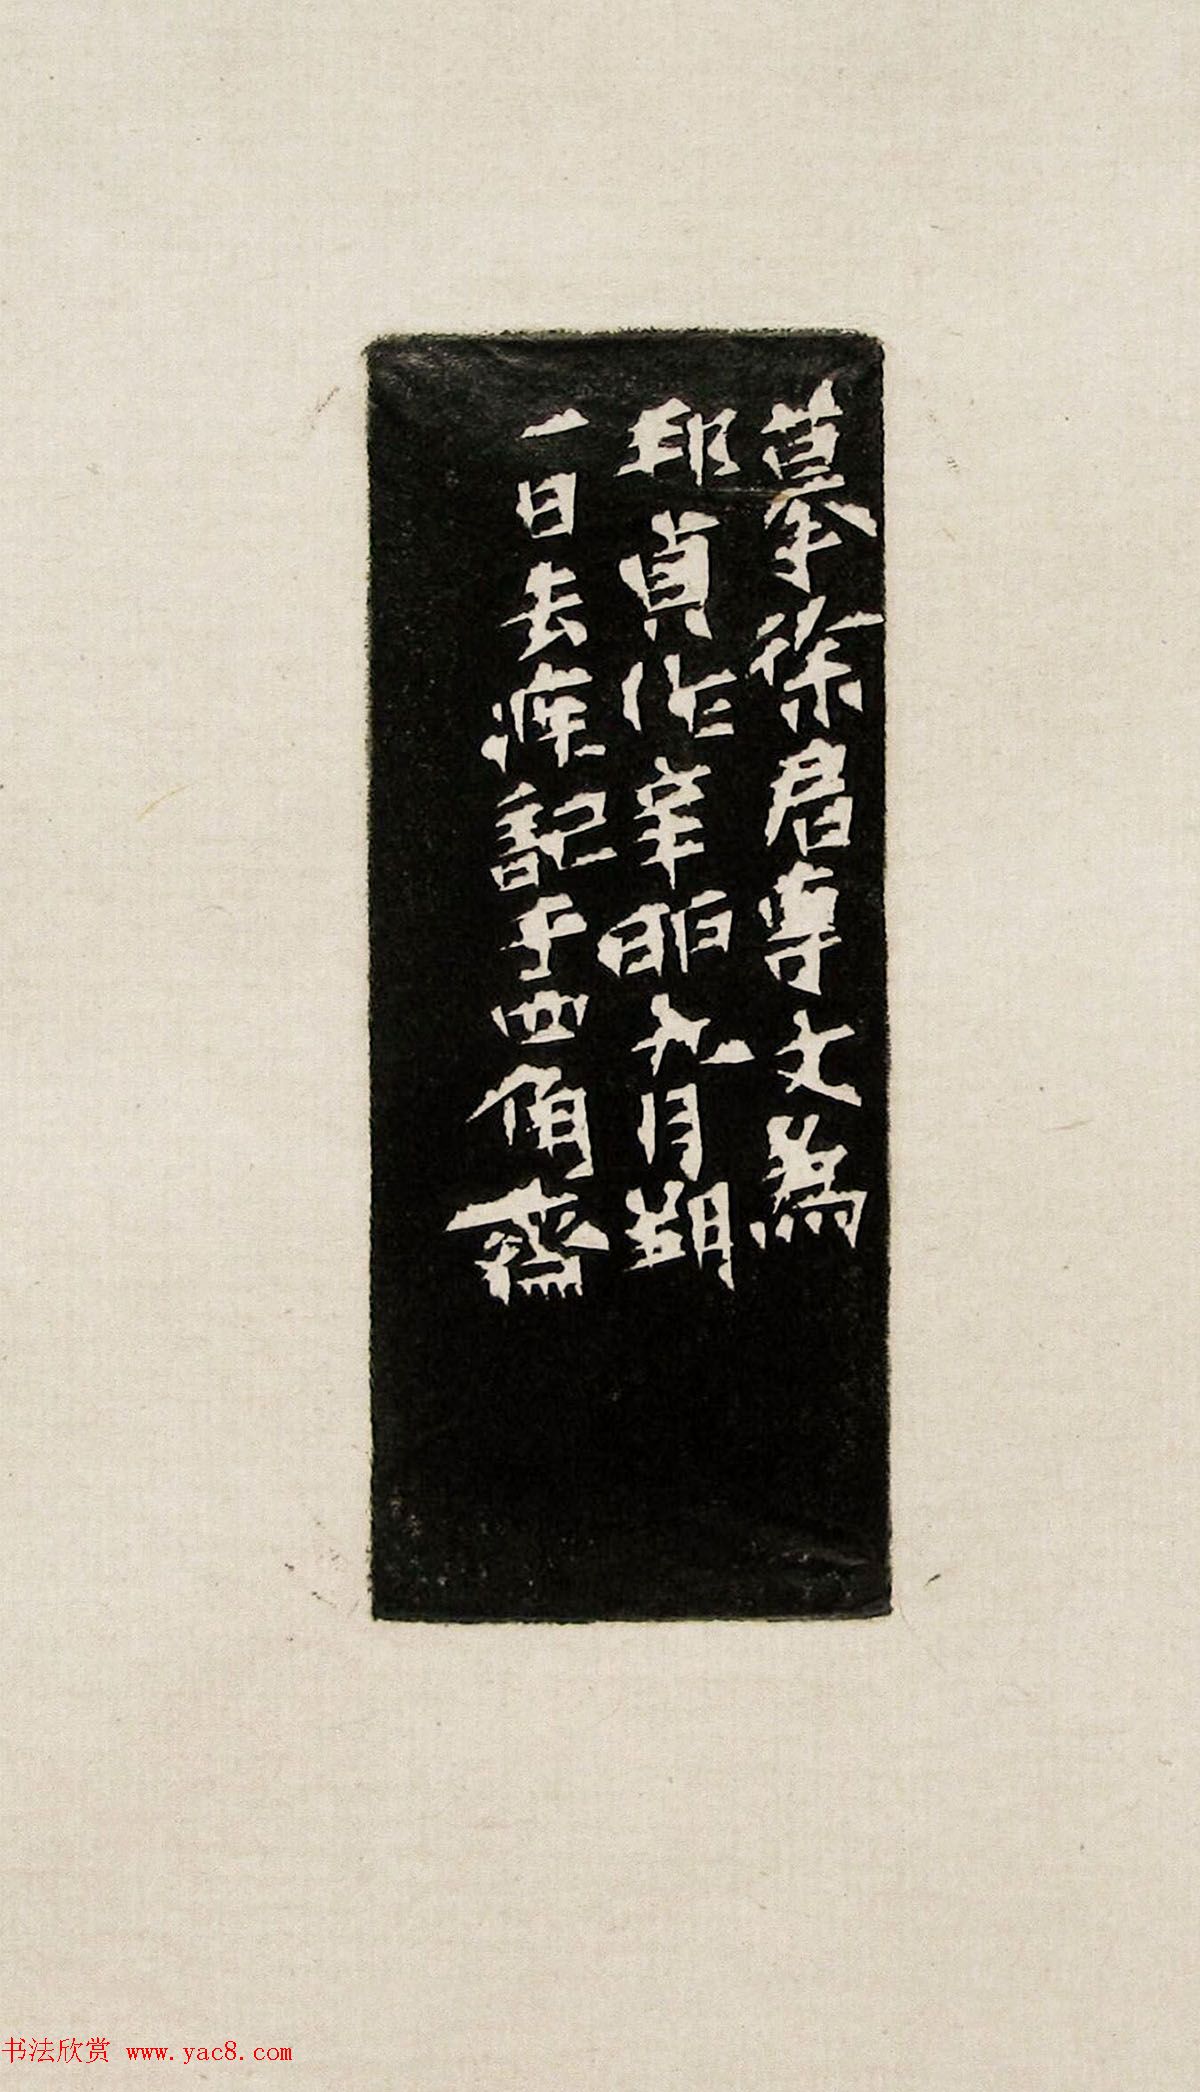 摹徐君專文爲
邦貞作辛卯九月朔
一日去疾記于四角齋
书法欣赏 www.yac8.com